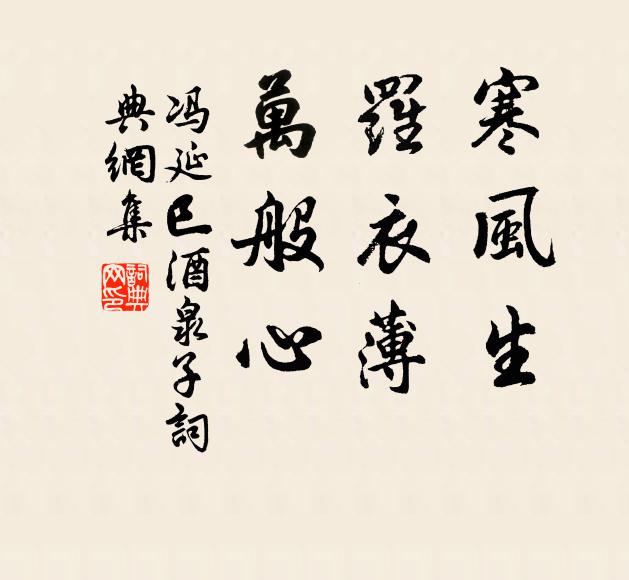 寒風生
羅衣薄
萬般心
冯延巳酒泉子詞
典網集
詞典网印